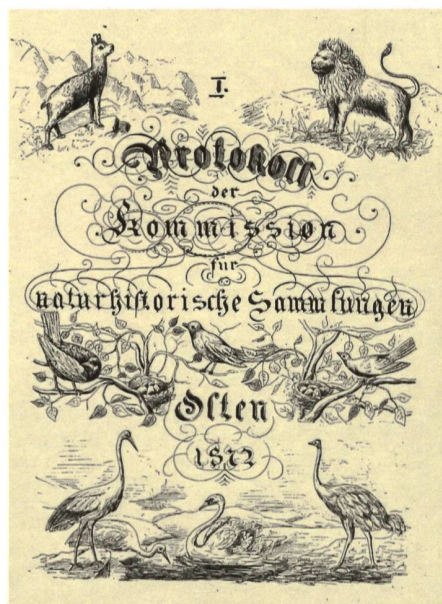 I.
Protokoll
der
Kommission
für
naturhistorische Sammlungen
Olten
1872